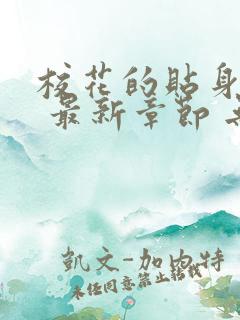 校花的貼身
最新章節
凱文-加內特
未经同意禁止转载